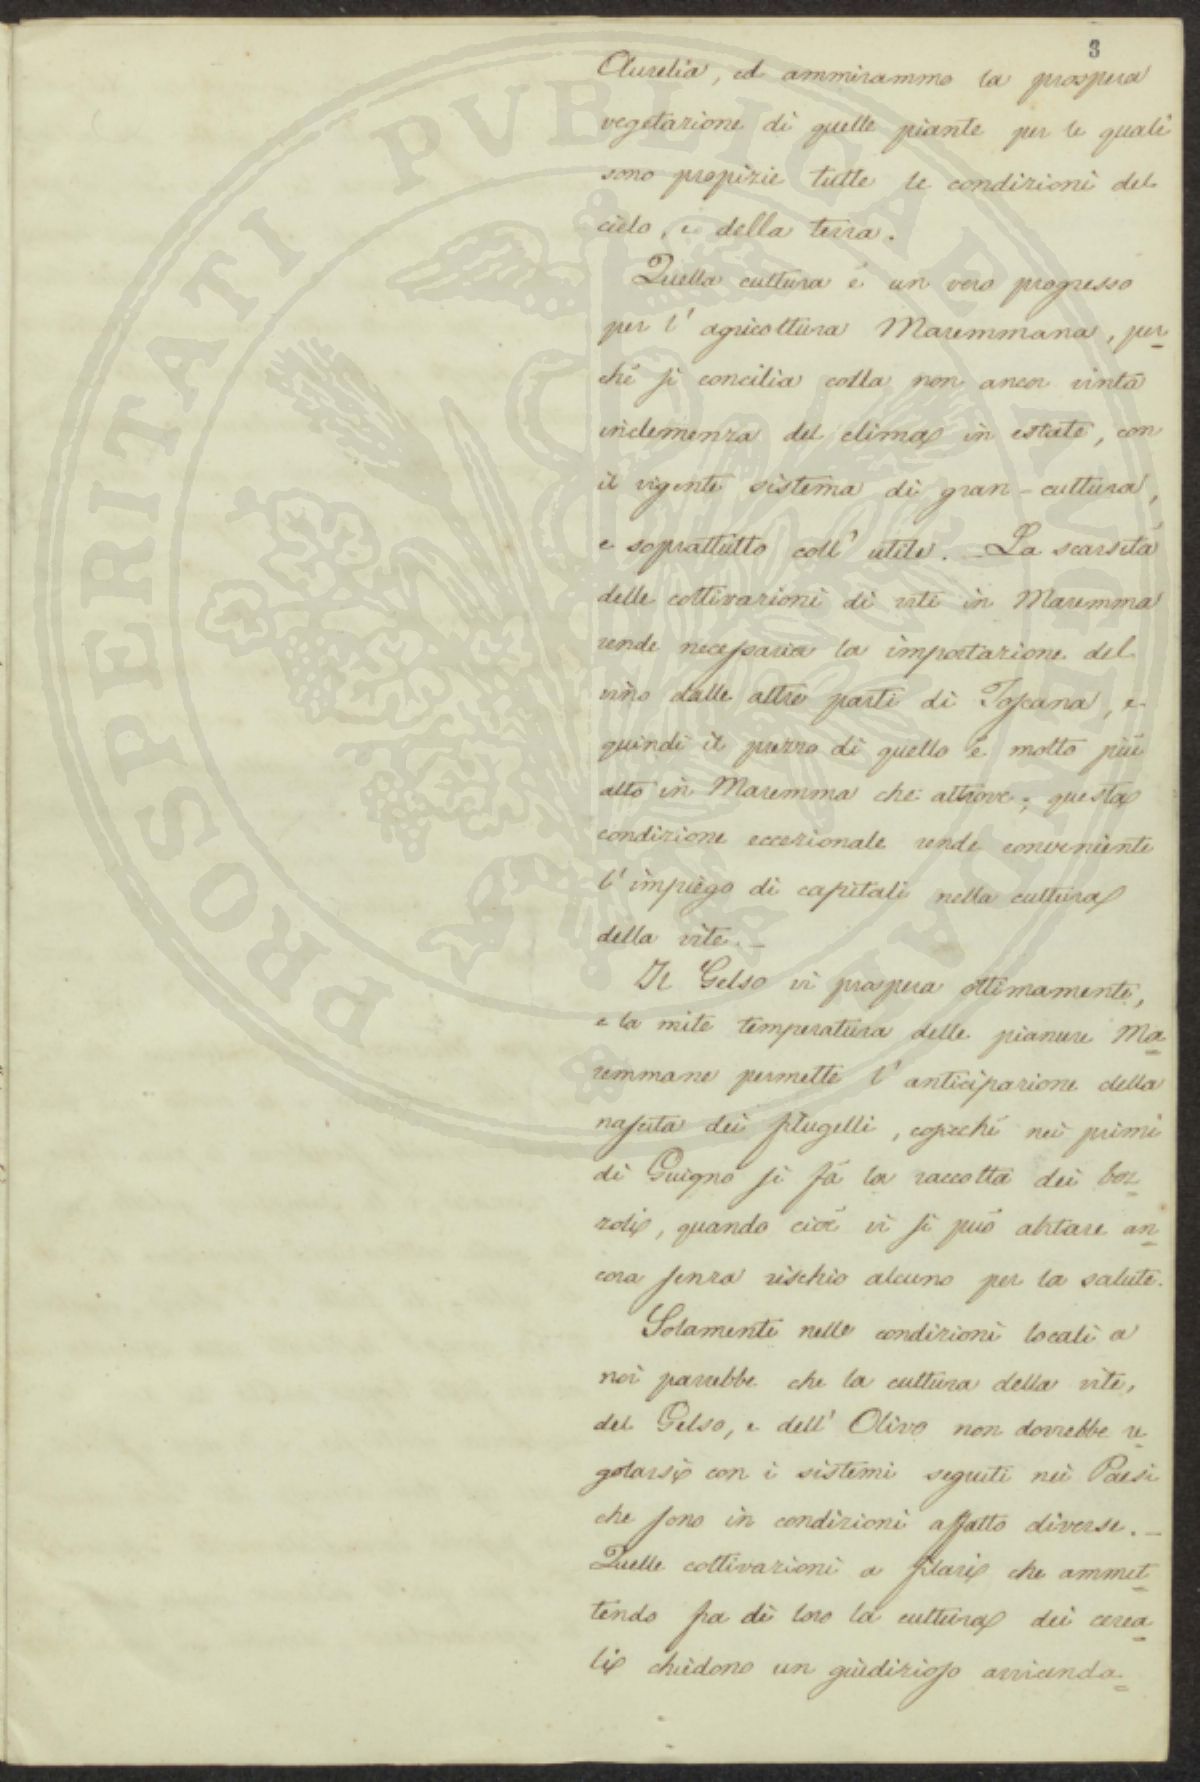 3
Aurelia, ed ammirammo la prospera
vegetazione di quelle piante per le quali
sono propizie tutte le condizioni del
cielo, e della terra.
Quella cultura è un vero progresso
per l' agricoltura Maremmana, per-
chè si concilia colla non ancor vinta
inclemenza del clima in estate, con
il vigente sistema di gran-cultura,
e soprattutto coll' utile. La scarsità
delle coltivazioni di vite in Maremma
rende necessaria la importazione del
vino dalle altre parti di Toscana, e
quindi il prezzo di quello è molto più
alto in Maremma che altrove; questa
condizione eccezionale rende conveniente
l' impiego di capitali nella cultura
della vite. -
Il Gelso vi prospera ottimamente,
e la mite temperatura delle pianure Ma-
remmane permette l' anticipazione della
nascita dei filugelli, cosicchè nei primi
di Guigno si fà la raccolta dei boz-
zoli, quando cioè vi si può abitare an-
cora senza rischio alcuno per la salute.
Solamente nelle condizioni locali a
noi parrebbe che la cultura della vite,
del Gelso, e dell' Olivo non dovrebbe re-
golarsi con i sistemi seguiti nei Paesi
che sono in condizioni affatto diverse. -
Quelle coltivazioni a filari che ammet-
tendo fra di loro la cultura dei cerea-
li chiedono un giudizioso avvicenda-
PROSPERITATI PVBLICAE AVGENDAE